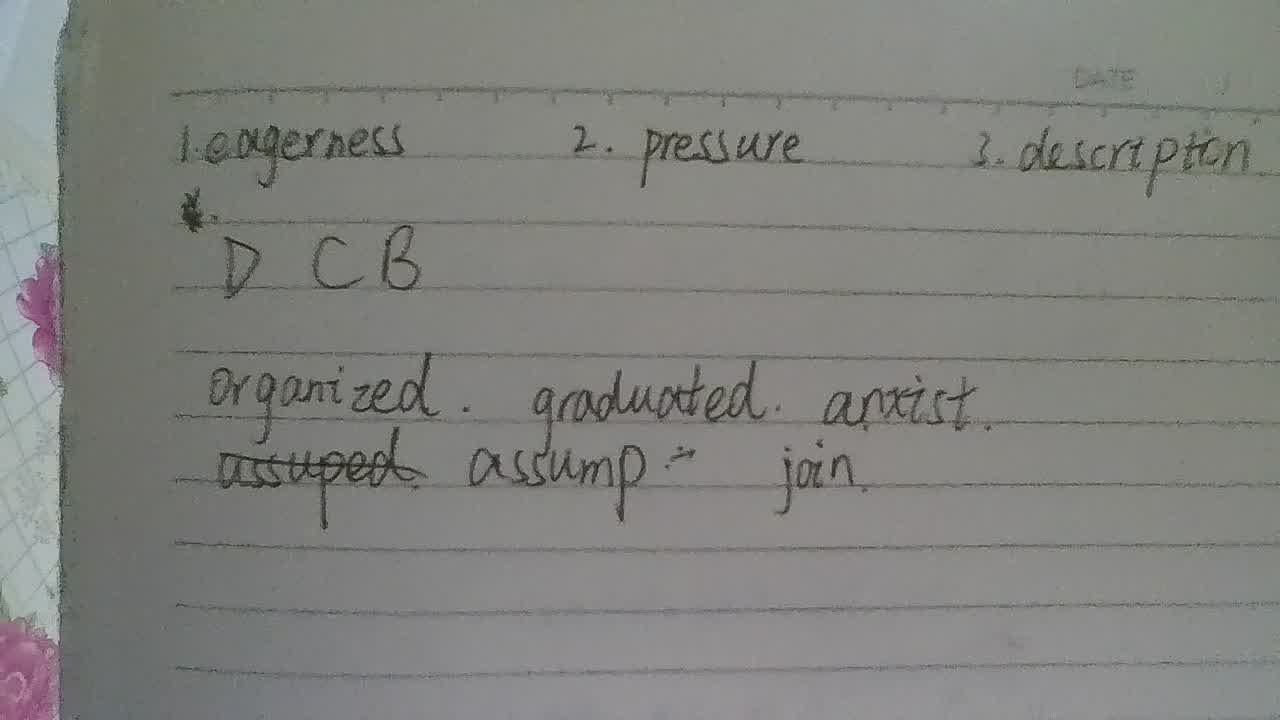 DATE
1. eagerness 2. pressure 3. description
D C B
organized. graduated. anxist.
assuped. assump join.